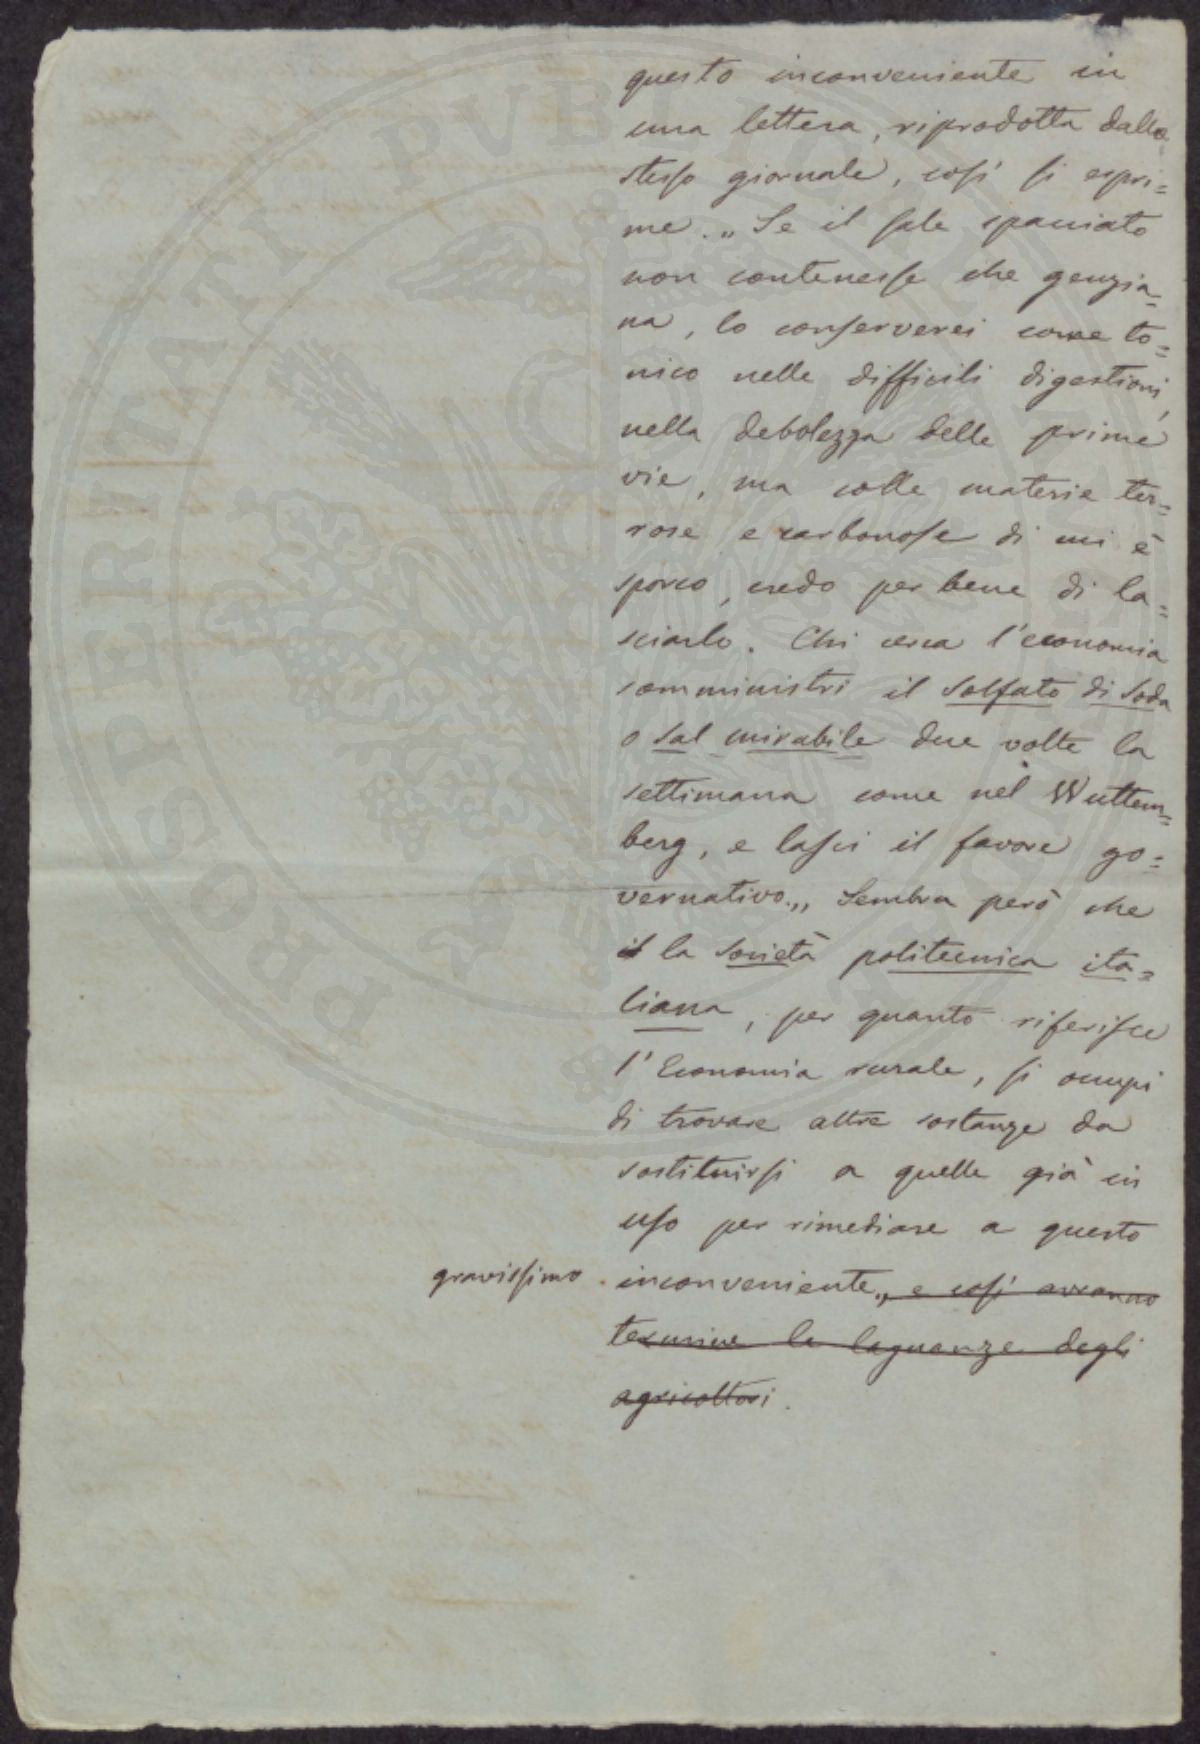 questo inconveniente in
una lettera, riprodotta dallo
stesso giornale, così si espri=
me. „Se il sale spacciato
non contenesse che genzia=
na, lo conserverei come to=
nico nelle difficili digestioni,
nella debolezza delle prime
vie, ma colle materie ter=
rose e carbonose di cui è
sporco, credo per bene di la=
sciarlo. Chi cerca l'economia
somministri il Solfato di Soda
o Sal mirabile due volte la
settimana come nel Wuttem=
berg, e lasci il favore go=
vernativo.„ Sembra però che
il la Società politecnica ita=
liana, per quanto riferisce
l'Economia rurale, si occupi
di trovare altre sostanze da
sostituirsi a quelle già in
uso per rimediare a questo
gravissimo inconveniente„ e così avranno
termine le lagnanze degli
agricoltori.
PROSPERITATI PVBLICAE